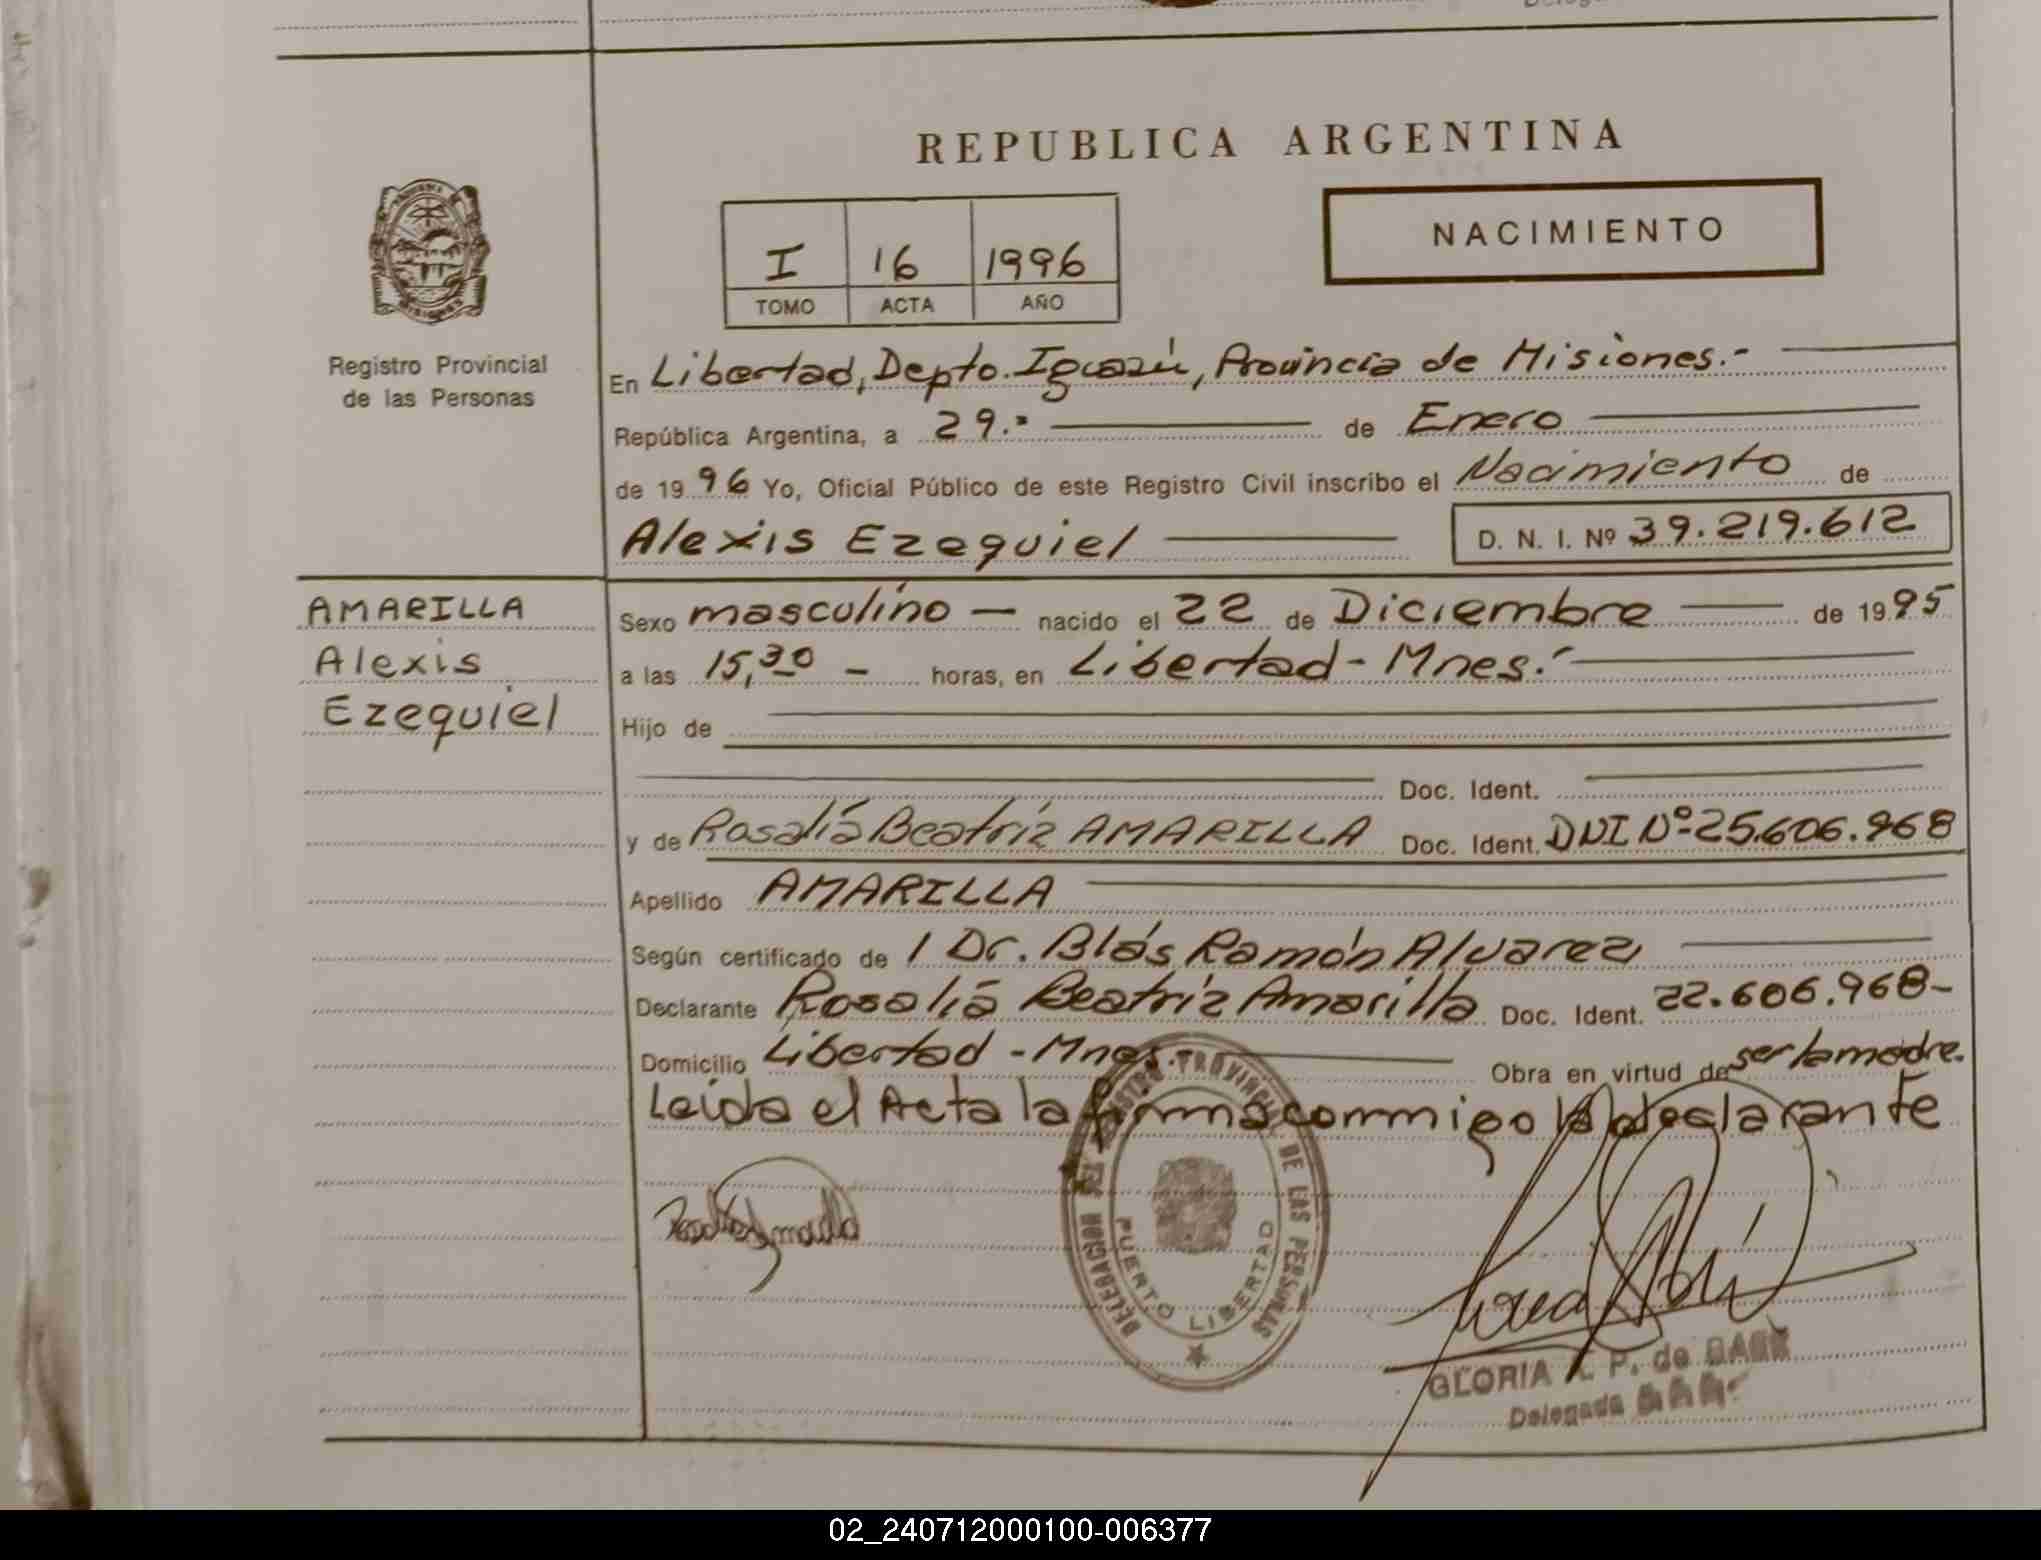 REPUBLICA ARGENTINA
NACIMIENTO
I 16 1996
TOMO ACTA AÑO
Registro Provincial
de las Personas
En Libertad, Depto. Iguazú, Provincia de Misiones.-
República Argentina, a 29.- de Enero
de 1996 Yo, Oficial Público de este Registro Civil inscribo el Nacimiento de
Alexis Ezequiel D. N. I. Nº 39.219.612
AMARILLA
Alexis
Ezequiel
Sexo masculino — nacido el 22 de Diciembre de 1995
a las 15,30 - horas, en Libertad - Mnes.-
Hijo de
Doc. Ident.
y de Rosalía Beatríz AMARILLA Doc. Ident. DNI Nº 25.606.968
Apellido AMARILLA
Según certificado de / Dr. Blás Ramón Alvarez
Declarante Rosalía Beatríz Amarilla Doc. Ident. 22.606.968-
Domicilio Libertad - Mnes. Obra en virtud de ser la madre.
Leída el Acta la firma conmigo la declarante
DELEGACION DEL REGISTRO PROVINCIAL DE LAS PERSONAS
PUERTO LIBERTAD
Rosalía Amarilla
GLORIA P. de
Delegada
02_240712000100-006377